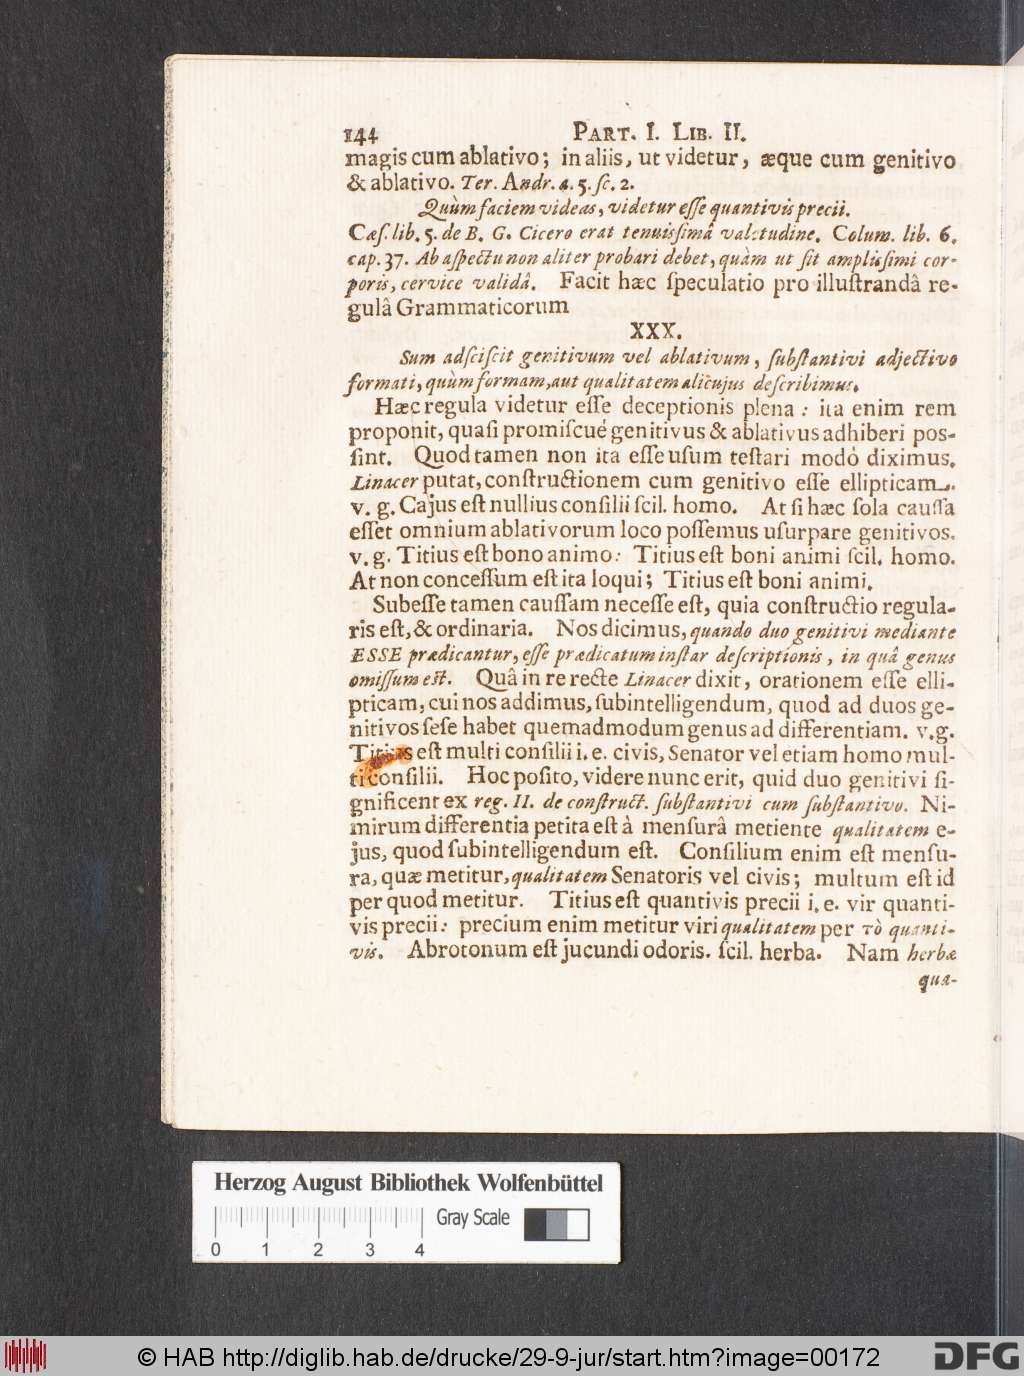 144 PART. I. LIB. II.
magis cum ablativo; in aliis, ut videtur, æque cum genitivo
& ablativo. Ter. Andr. a. 5. ſc. 2.
Quùm faciem videas, videtur eſſe quantivis precii.
Cæſ. lib. 5. de B. G. Cicero erat tenuiſſimâ valetudine. Colum. lib. 6.
cap. 37. Ab aſpectu non aliter probari debet, quàm ut ſit ampliſſimi cor-
poris, cervice validâ. Facit hæc ſpeculatio pro illuſtrandâ re-
gulâ Grammaticorum
XXX.
Sum adſciſcit genitivum vel ablativum, ſubſtantivi adjectivo
formati, quùm formam, aut qualitatem alicujus deſcribimus.
Hæc regula videtur eſſe deceptionis plena: ita enim rem
proponit, quaſi promiſcuè genitivus & ablativus adhiberi poſ-
ſint. Quod tamen non ita eſſe uſum teſtari modò diximus.
Linacer putat, conſtructionem cum genitivo eſſe ellipticam.
v. g. Cajus eſt nullius conſilii ſcil. homo. At ſi hæc ſola cauſſa
eſſet omnium ablativorum loco poſſemus uſurpare genitivos.
v. g. Titius eſt bono animo: Titius eſt boni animi ſcil. homo.
At non conceſſum eſt ita loqui; Titius eſt boni animi.
Subeſſe tamen cauſſam neceſſe eſt, quia conſtructio regula-
ris eſt, & ordinaria. Nos dicimus, quando duo genitivi mediante
ESSE prædicantur, eſſe prædicatum inſtar deſcriptionis, in quâ genus
omiſſum eſt. Quâ in re recte Linacer dixit, orationem eſſe elli-
pticam, cui nos addimus, ſubintelligendum, quod ad duos ge-
nitivos ſeſe habet quemadmodum genus ad differentiam. v. g.
Titius eſt multi conſilii i. e. civis, Senator vel etiam homo mul-
ti conſilii. Hoc poſito, videre nunc erit, quid duo genitivi ſi-
gnificent ex reg. II. de conſtruct. ſubſtantivi cum ſubſtantivo. Ni-
mirum differentia petita eſt à menſurâ metiente qualitatem e-
jus, quod ſubintelligendum eſt. Conſilium enim eſt menſu-
ra, quæ metitur, qualitatem Senatoris vel civis; multum eſt id
per quod metitur. Titius eſt quantivis precii i. e. vir quanti-
vis precii: precium enim metitur viri qualitatem per τὸ quanti-
vis. Abrotonum eſt jucundi odoris. ſcil. herba. Nam herbæ
qua-
Herzog August Bibliothek Wolfenbüttel
Gray Scale
0 1 2 3 4
© HAB http://diglib.hab.de/drucke/29-9-jur/start.htm?image=00172
DFG